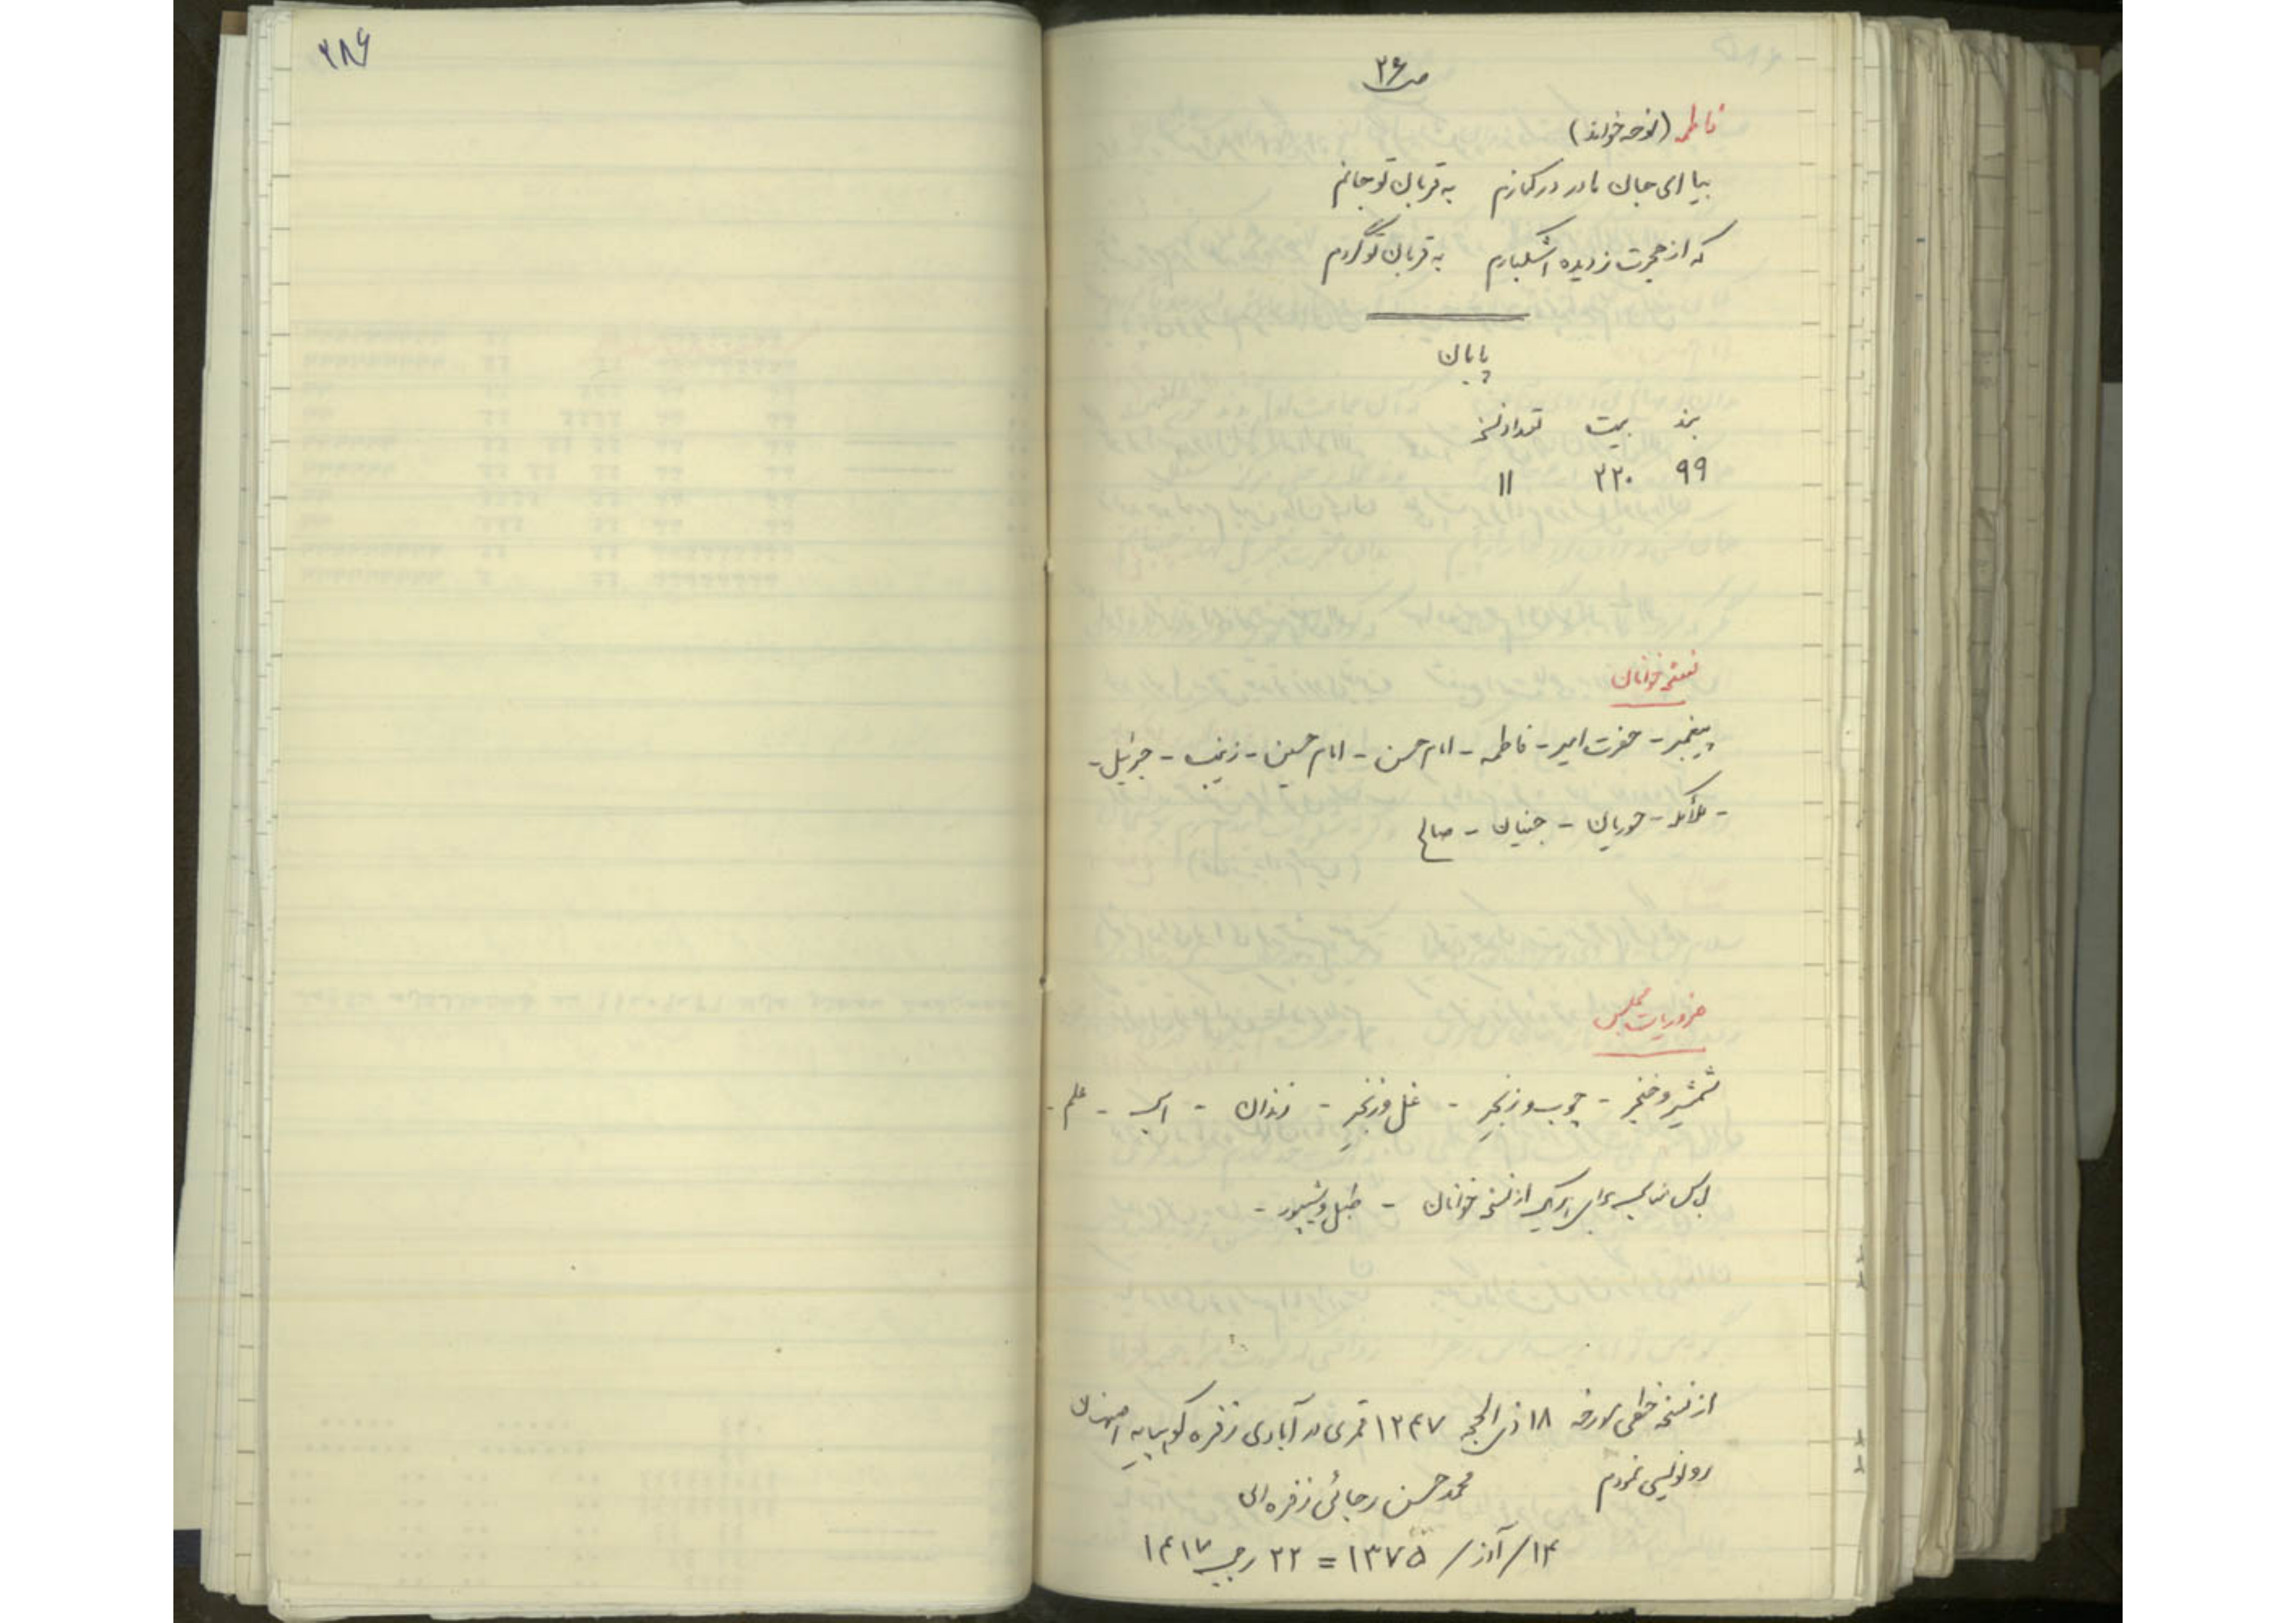 ص ۲۶
فاطمه (نوحه خواند)
بیا ای جان مادر در کنارم به قربان تو جانم
که از هجرت ز دیده اشکبارم به قربان تو گردم
پایان
بند بیت تعداد نسخه
۹۹ ۲۲۰ ۱۱
نسخه خوانان
پیغمبر - حضرت امیر - فاطمه - امام حسن - امام حسین - زینب - جبرئیل -
- ملائکه - حوریان - جنیان - صالح
ضروریات مجلس
شمشیر و خنجر - چوب و زنجیر - غل و زنجیر - زندان - اسب - علم -
لباس مناسب برای هر یک از نسخه خوانان - طبل و شیپور -
از نسخه خطی مورخه ۱۸ ذی الحجه ۱۲۴۷ قمری در آبادی زفره کوهپایه اصفهان
رونویسی نمودم محمد حسن رجائی زفره ای
۱۴/آذر/۱۳۷۵ = ۲۲ رجب ۱۴۱۷
۲۸۶